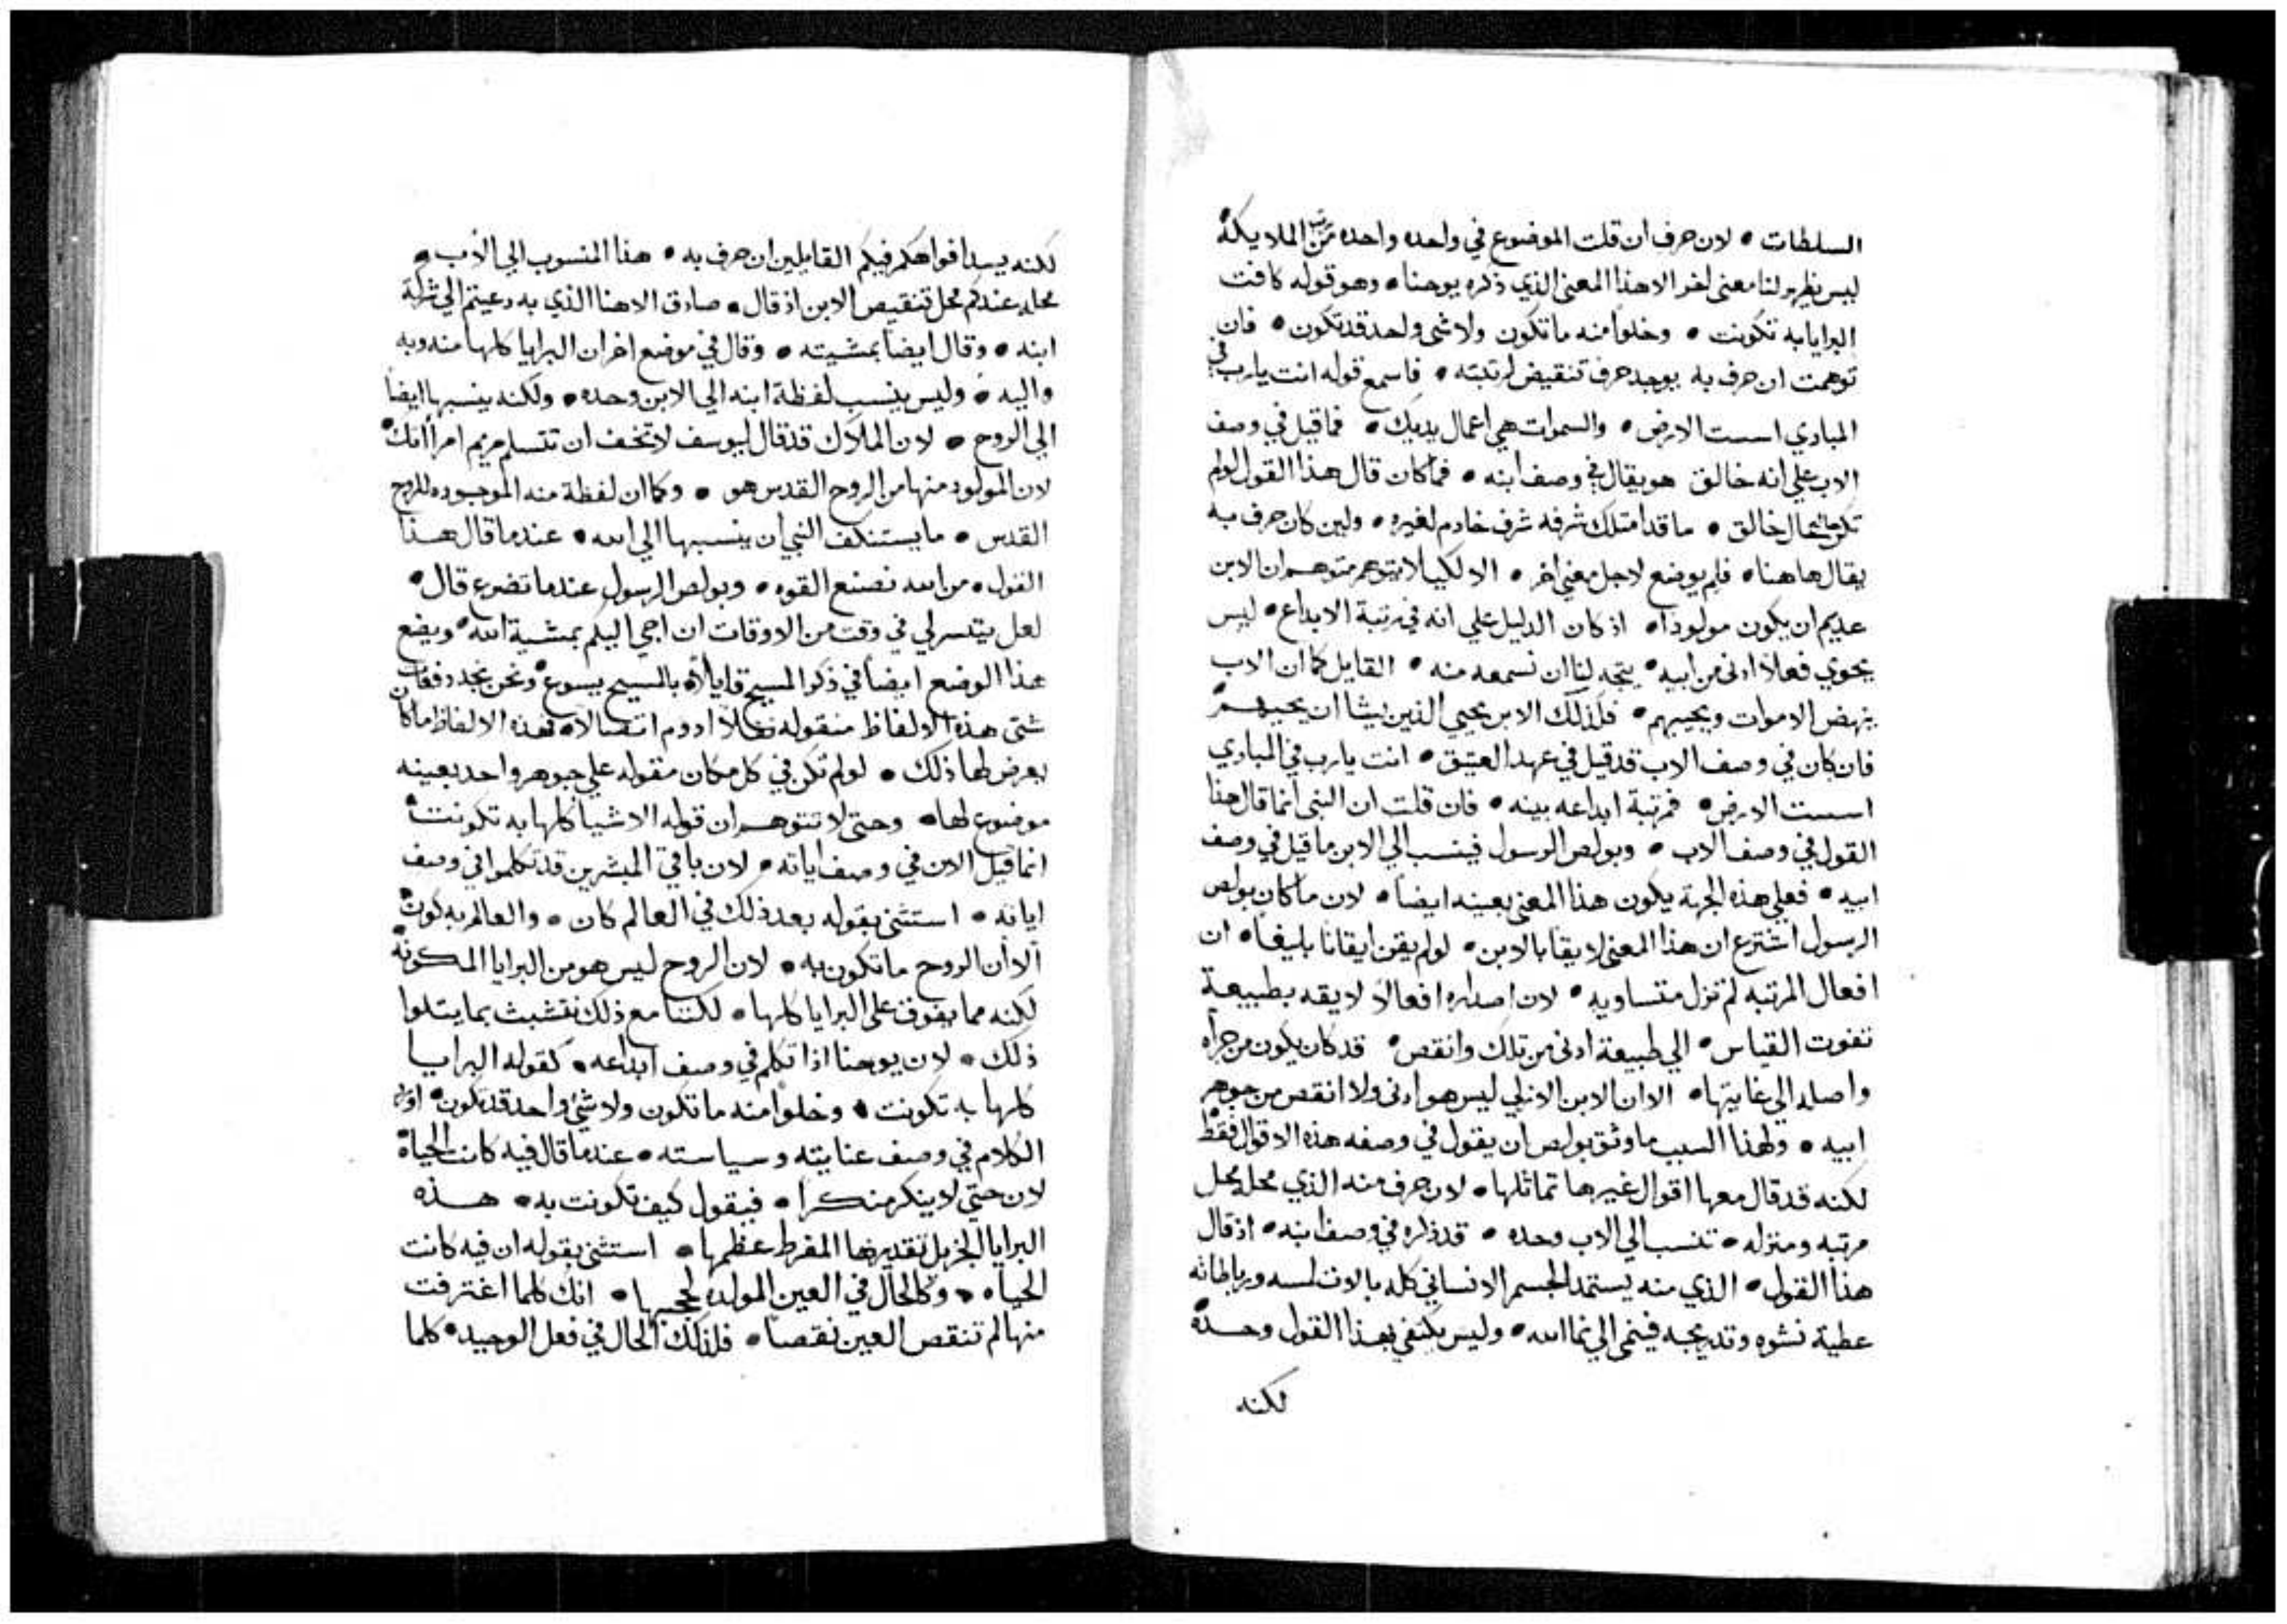 السلطات • لان حرف ان قلت الموضوع في واحده واحده من الملايكة
ليس يظهر لنا معنى اخر الا هذا المعنى الذي ذكره يوحنا • وهو قوله كافت
البرايا به تكونت • وخلوا منه ما تكون ولا شي واحد قد تكون • فان
توهمت ان حرف به يوجد حرف تنقيض لرتبته • فاسمع قوله انت يا رب في
المبادي اسست الارض • والسموات هي اعمال يديك • فما قيل في وصف
الاب علي انه خالق هو يقال في وصف ابنه • فما كان قال هذا القول لو لم
تكن حال خالق • ما قد امتلك شرفه شرف خادم لغيره • ولين كان حرف به
يقال هاهنا • فلم يوضع لاجل معني اخر • الا لكيلا يتوهم متوهم ان الابن
عديم ان يكون مولودا • اذ كان الدليل علي انه في رتبة الابداع • ليس
يحوي فعلا ادنى من ابيه • يتجه لنا ان نسمعه منه • القايل كما ان الاب
ينهض الاموات ويحييهم • فلذلك الابن يحيي الذين يشا ان يحييهم
فان كان في وصف الاب قد قيل في عهد العتيق • انت يا رب في المبادي
اسست الارض • فمرتبة ابداعه بينه • فان قلت ان النبي انما قال هذا
القول في وصف الاب • وبولص الرسول فينسب الي الابن ما قيل في وصف
ابيه • فعلي هذه الجهة يكون هذا المعنى بعينه ايضا • لان ما كان بولص
الرسول اشترع ان هذا المعنى لايقا بالابن • لو لم يقن ايقانا بليغا • ان
افعال المرتبه لم تزل متساويه • لان اصداره افعالا لايقه بطبيعة
تفوت القياس • الي طبيعة ادنى من تلك وانقص • قد كان يكون من جراه
واصله الي غايتها • الا ان الابن الازلي ليس هو ادنى ولا انقص من جوهر
ابيه • ولهذا السبب ما وثق بولص ان يقول في وصفه هذه الاقوال فقط
لكنه قد قال معها اقوال غيرها تماثلها • لان حرف منه الذي محله محل
مرتبه ومنزله • تنسب الي الاب وحده • قد ذكره في وصف ابنه • اذ قال
هذا القول • الذي منه يستمد الجسم الانساني كله بالات لمسه ورباطاته
عطية نشوه وتدريجه فينمى الي نما الله • وليس يكتفي بهذا القول وحده
لكنه
لكنه يسد افواهكم فيكم القايلين ان حرف به • هذا المنسوب الي الاب •
محله عندكم محل تنقيص الابن اذ قال • صادق الاهنا الذي به دعيتم الي شركة
ابنه • وقال ايضا بمشيته • وقال في موضع اخر ان البرايا كلها منه وبه
واليه • وليس ينسب لفظة ابنه الي الابن وحده • ولكنه ينسبها ايضا
الي الروح • لان الملاك قد قال ليوسف لا تخف ان تتسلم مريم امراتك
لان المولود منها من الروح القدس هو • وكما ان لفظة منه الموجوده للروح
القدس • ما يستنكف النبي ان ينسبها الي الله • عندما قال هذا
القول • من الله نصنع القوه • وبولص الرسول عندما تضرع قال •
لعل يتسر لي في وقت من الاوقات ان اجي اليكم بمشية الله • ويضع
هذا الوضع ايضا في ذكر المسيح قايلا • بالمسيح يسوع • ونحن نجد دفعات
شتى هذه الالفاظ منقوله نقلا ادوم اتصالا • فهذه الالفاظ ما كان
يعرض لها ذلك • لو لم تكن في كل مكان مقوله علي جوهر واحد بعينه
موضوع لها • وحتى لا تتوهم ان قوله الاشيا كلها به تكونت
انما قيل الان في وصف اياته • لان باقي المبشرين قد تكلموا في وصف
اياته • استثنى بقوله بعد ذلك في العالم كان • والعالم به كون
الا ان الروح ما تكون به • لان الروح ليس هو من البرايا المكونه
لكنه مما يفوق على البرايا كلها • لكننا مع ذلك نتشبث بما يتلوا
ذلك • لان يوحنا اذا تكلم في وصف ابداعه • كقوله البرايا
كلها به تكونت • وخلوا منه ما تكون ولا شي واحد قد تكون •
الكلام في وصف عنايته وسياسته • عندما قال فيه كانت الحياة
لان حتي لا ينكر منكرا • فيقول كيف تكونت به • هذه
البرايا الجزيل تقديرها المفرط عظمها • استثنى بقوله ان فيه كانت
الحياه • وكالحال في العين المولده لججها • انك كلما اغترفت
منها لم تنقص العين نقصا • فلذلك الحال في فعل الوحيد • كلما